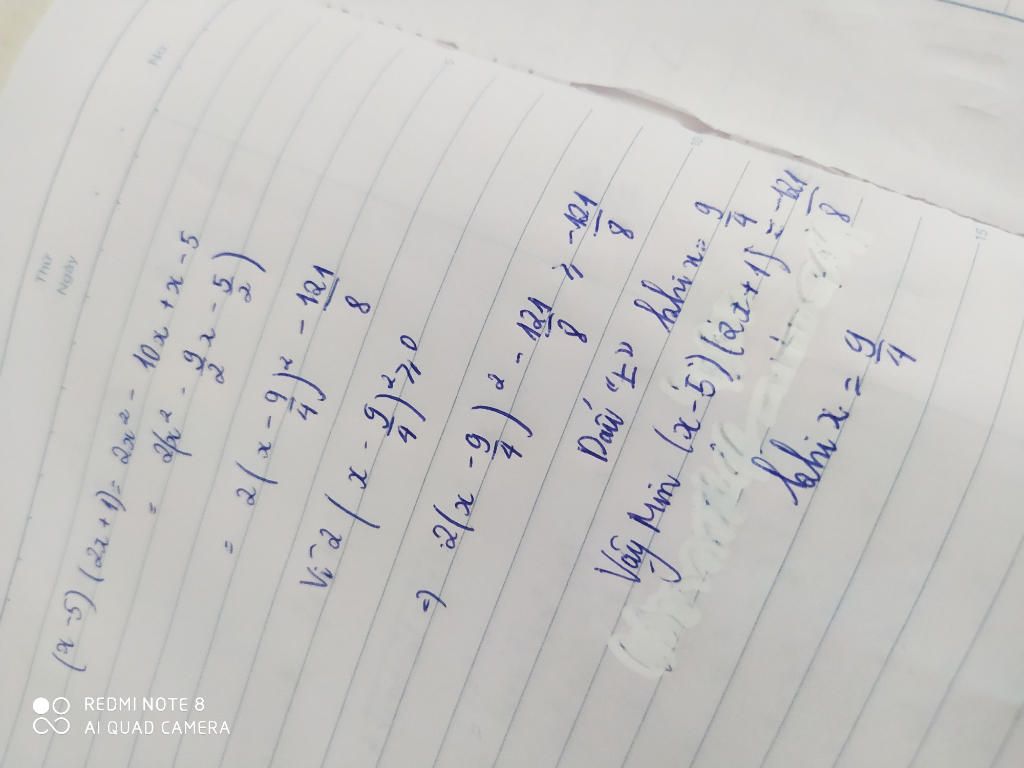 Thứ
Ngày
No.
(x-5)(2x+1) = 2x² - 10x + x - 5
= 2(x² - 9/2 x - 5/2)
= 2(x - 9/4)² - 121/8
Vì 2(x - 9/4)² ≥ 0
=> 2(x - 9/4)² - 121/8 ≥ -121/8
Dấu "=" khi x = 9/4
Vậy Min (x-5)(2x+1) = -121/8
khi x = 9/4
5
10
15
REDMI NOTE 8
AI QUAD CAMERA